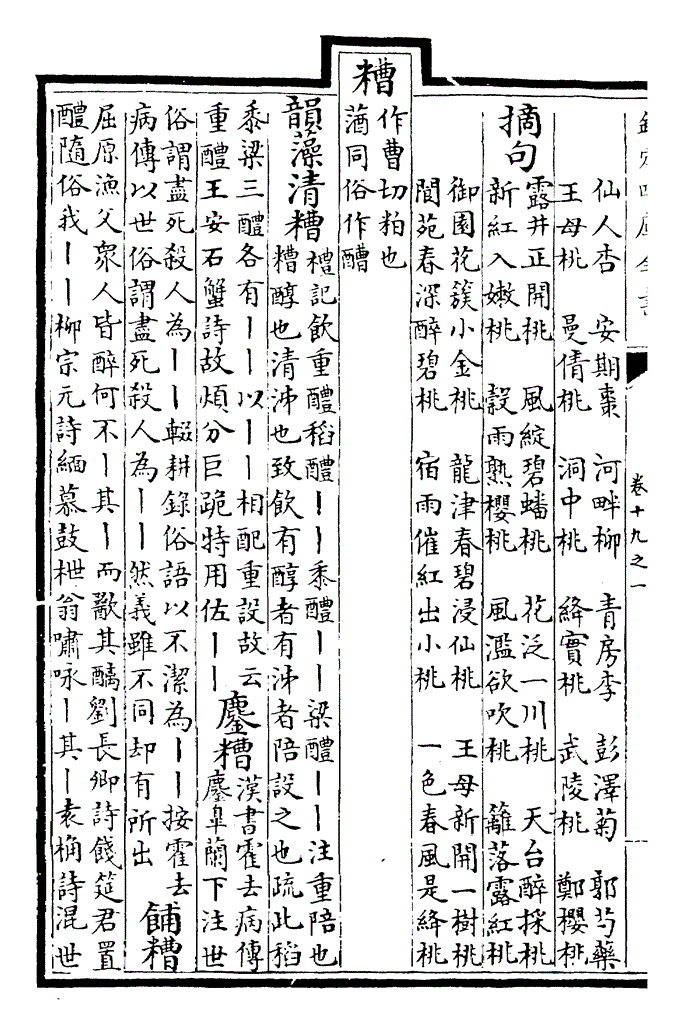 欽定四庫全書
卷十九之一
仙人杏　安期棗　河畔柳　青房李　彭澤菊　郭芍藥
王母桃　曼倩桃　洞中桃　絳實桃　武陵桃　鄭櫻桃
摘句
露井正開桃　風綻碧蟠桃　花泛一川桃　天台醉採桃
新紅入嫩桃　穀雨熟櫻桃　風濫欲吹桃　籬落露紅桃
御園花簇小金桃　龍津春碧浸仙桃　王母新開一樹桃
閬苑春深醉碧桃　宿雨催紅出小桃　一色春風是絳桃
糟
作曹切粕也
蒏同俗作醩
韻藻清糟
禮記飲重醴稻醴丨丨黍醴丨丨粱醴丨丨注重陪也
糟醇也清泲也致飲有醇者有泲者陪設之也疏此稻
黍粱三醴各有丨丨以丨丨相配重設故云
重醴王安石蟹詩故煩分巨跪持用佐丨丨
鏖糟
漢書霍去病傳
鏖皋蘭下注世
俗謂盡死殺人為丨丨輟耕錄俗語以不潔為丨丨按霍去
病傳以世俗謂盡死殺人為丨丨然義雖不同却有所出
餔糟
屈原漁父衆人皆醉何不丨其丨而歠其醨劉長卿詩餞筵君置
醴隨俗我丨丨柳宗元詩緬慕鼓枻翁嘯咏丨其丨袁桷詩混世